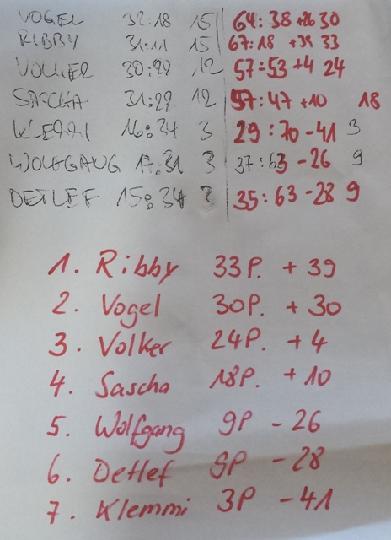 VOGEL 32:18 15 64:38 +26 30
RIBBY 31:11 15 67:18 +39 33
VOLKER 30:29 12 57:53 +4 24
SASCHA 31:29 12 57:47 +10 18
16:34 3 29:70 -41 3
WOLFGANG 17:31 3 37:63 -26 9
DETLEF 15:34 35:63 -28 9
1. Ribby 33P. + 39
2. Vogel 30P. + 30
3. Volker 24P. + 4
4. Sascha 18P. + 10
5. Wolfgang 9P - 26
6. Detlef 9P - 28
7. Klemmi 3P - 41